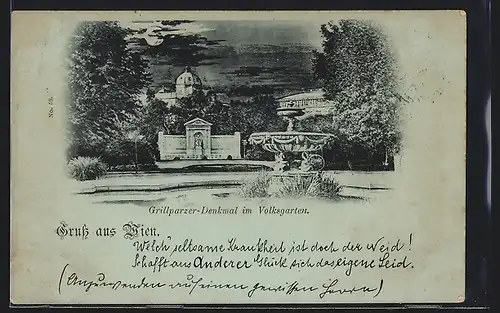 No: 52.
Grillparzer-Denkmal im Volksgarten.
Gruß aus Wien.
Welch' seltsame Krankheit ist doch der Neid!
Schafft aus Anderer Glück sich das eigene Leid.
(Anzuwenden auf einen gewissen Herrn)